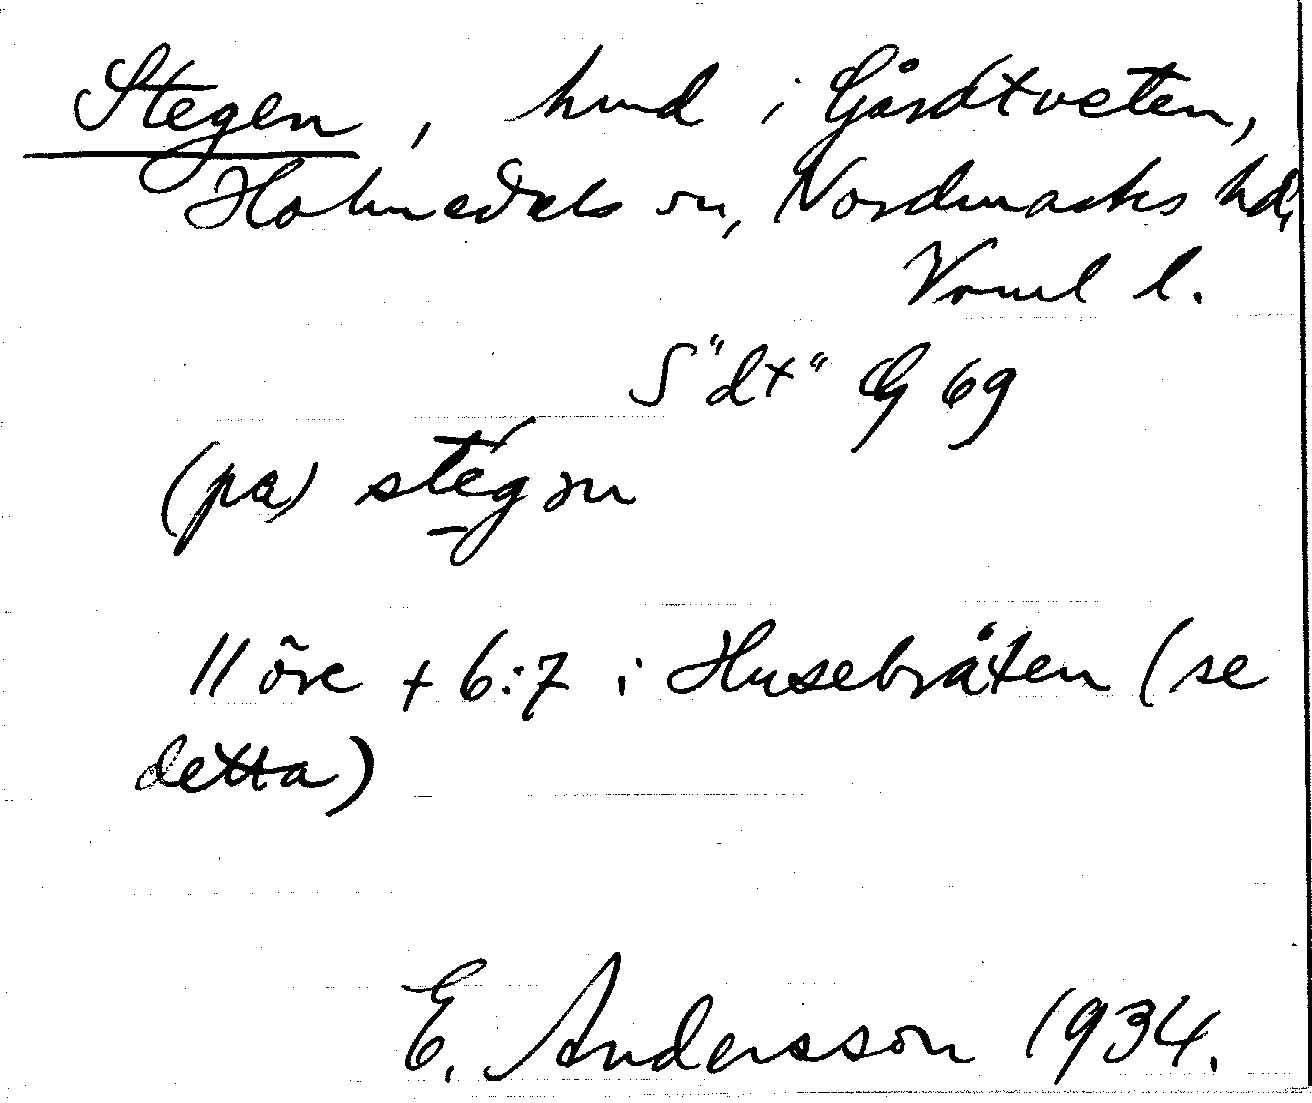 Stegen, hmd i Gårdtveten,
Holmedals sn, Nordmarks hd,
Vrml l.
S "dt" G 69
(pa) stegɔn
11 öre + 6:7 i Husebråten (se
detta)
E. Andersson 1934.